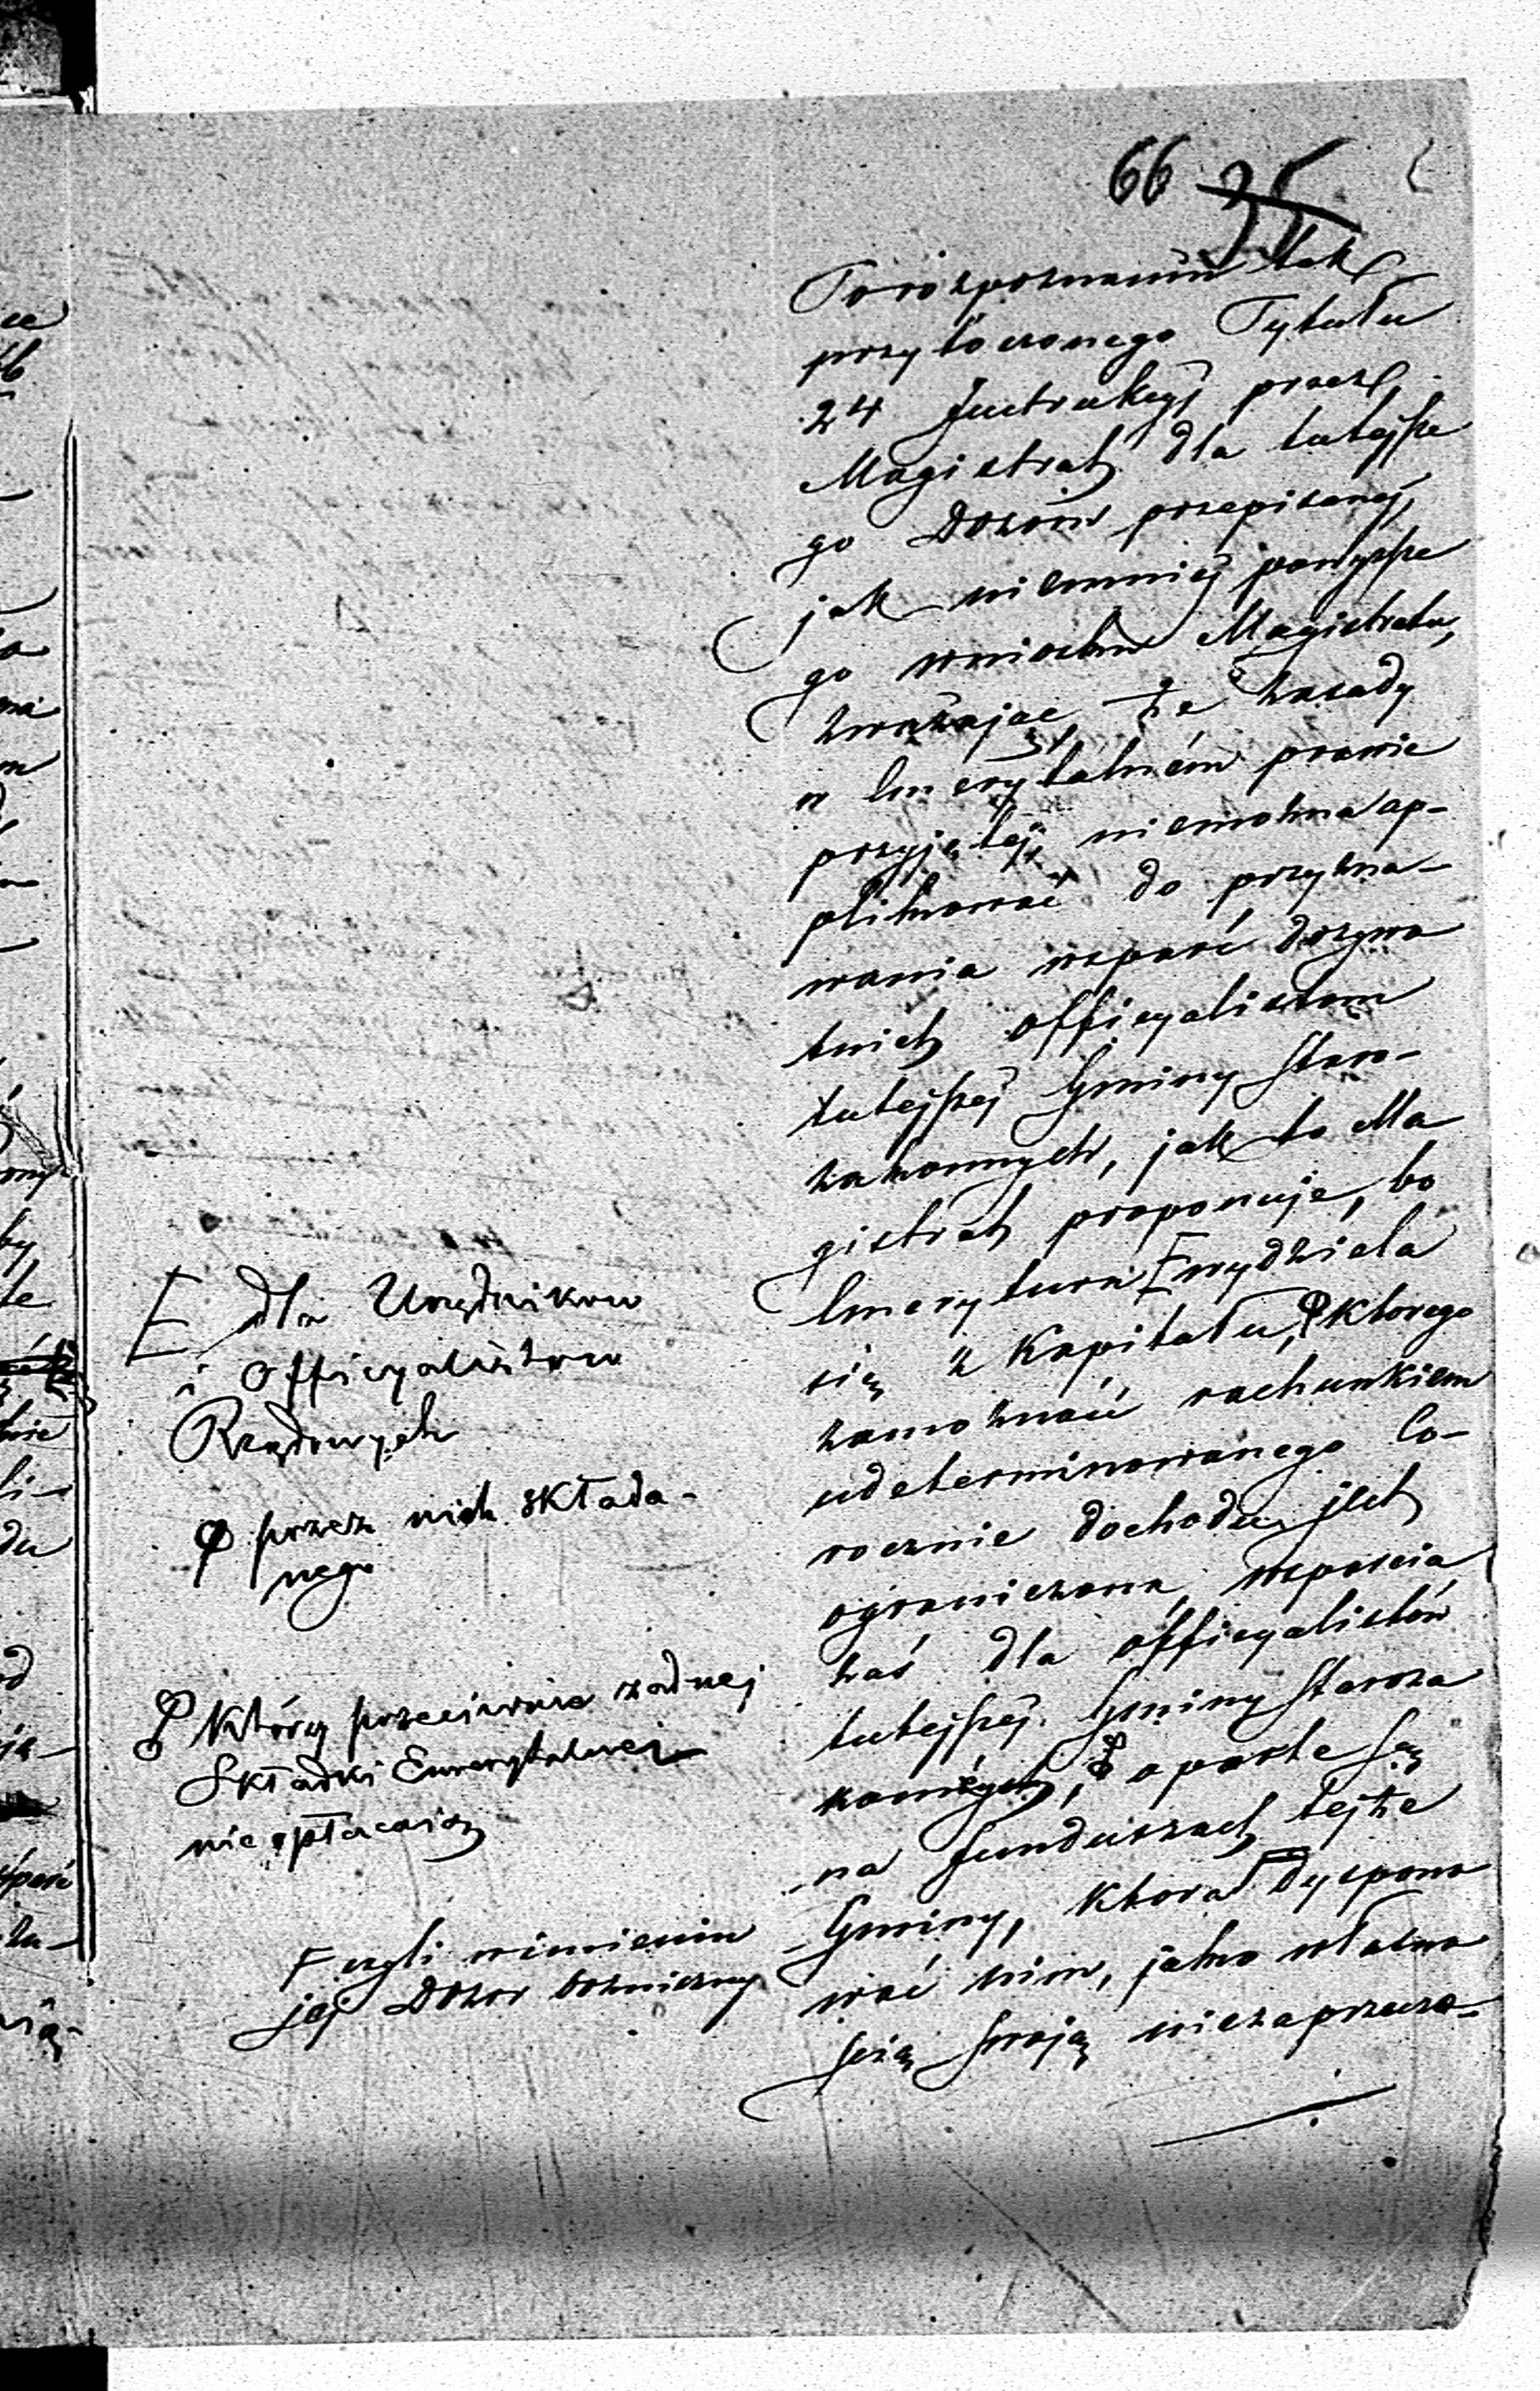 66 35
Po rozpoznaniu tak
przytoczonego Tytułu
24 Instrukcyi przez
Magistrat dla tutejsze
go Dozoru przepisanej,
jak niemniej powyższe
go wniosku Magistratu,
zważając, że zasady
w Emerytalném prawie
przyjętéj, niemożna ap-
plikować do przyzna-
wania wsparć dożywo
tnich officyalistom
tutejszej Gminy Staro-
zakonnych, jak to Ma
gistrat proponuje, bo
Emerytura wydziela
się z Kapitału, którego
zamożność rachunkiem
udeterminowanego Co-
rocznie dochodu jest
ograniczona, wsparcia
zaś dla officyalistów
tutejszej Gminy Staroza
konnych, oparte są
na funduszach tejże
Gminy, która dyspono
wać nim, jako własno
ścią swoją niezaprzecza-
dla Urzędników
i Officyalistow
Rządowych
przez nich składa-
nego
Którzy przeciwnie żadnej
Składki Emerytalnej
nie opłacają
czyli wimieniu
jej Dozor bożniczny